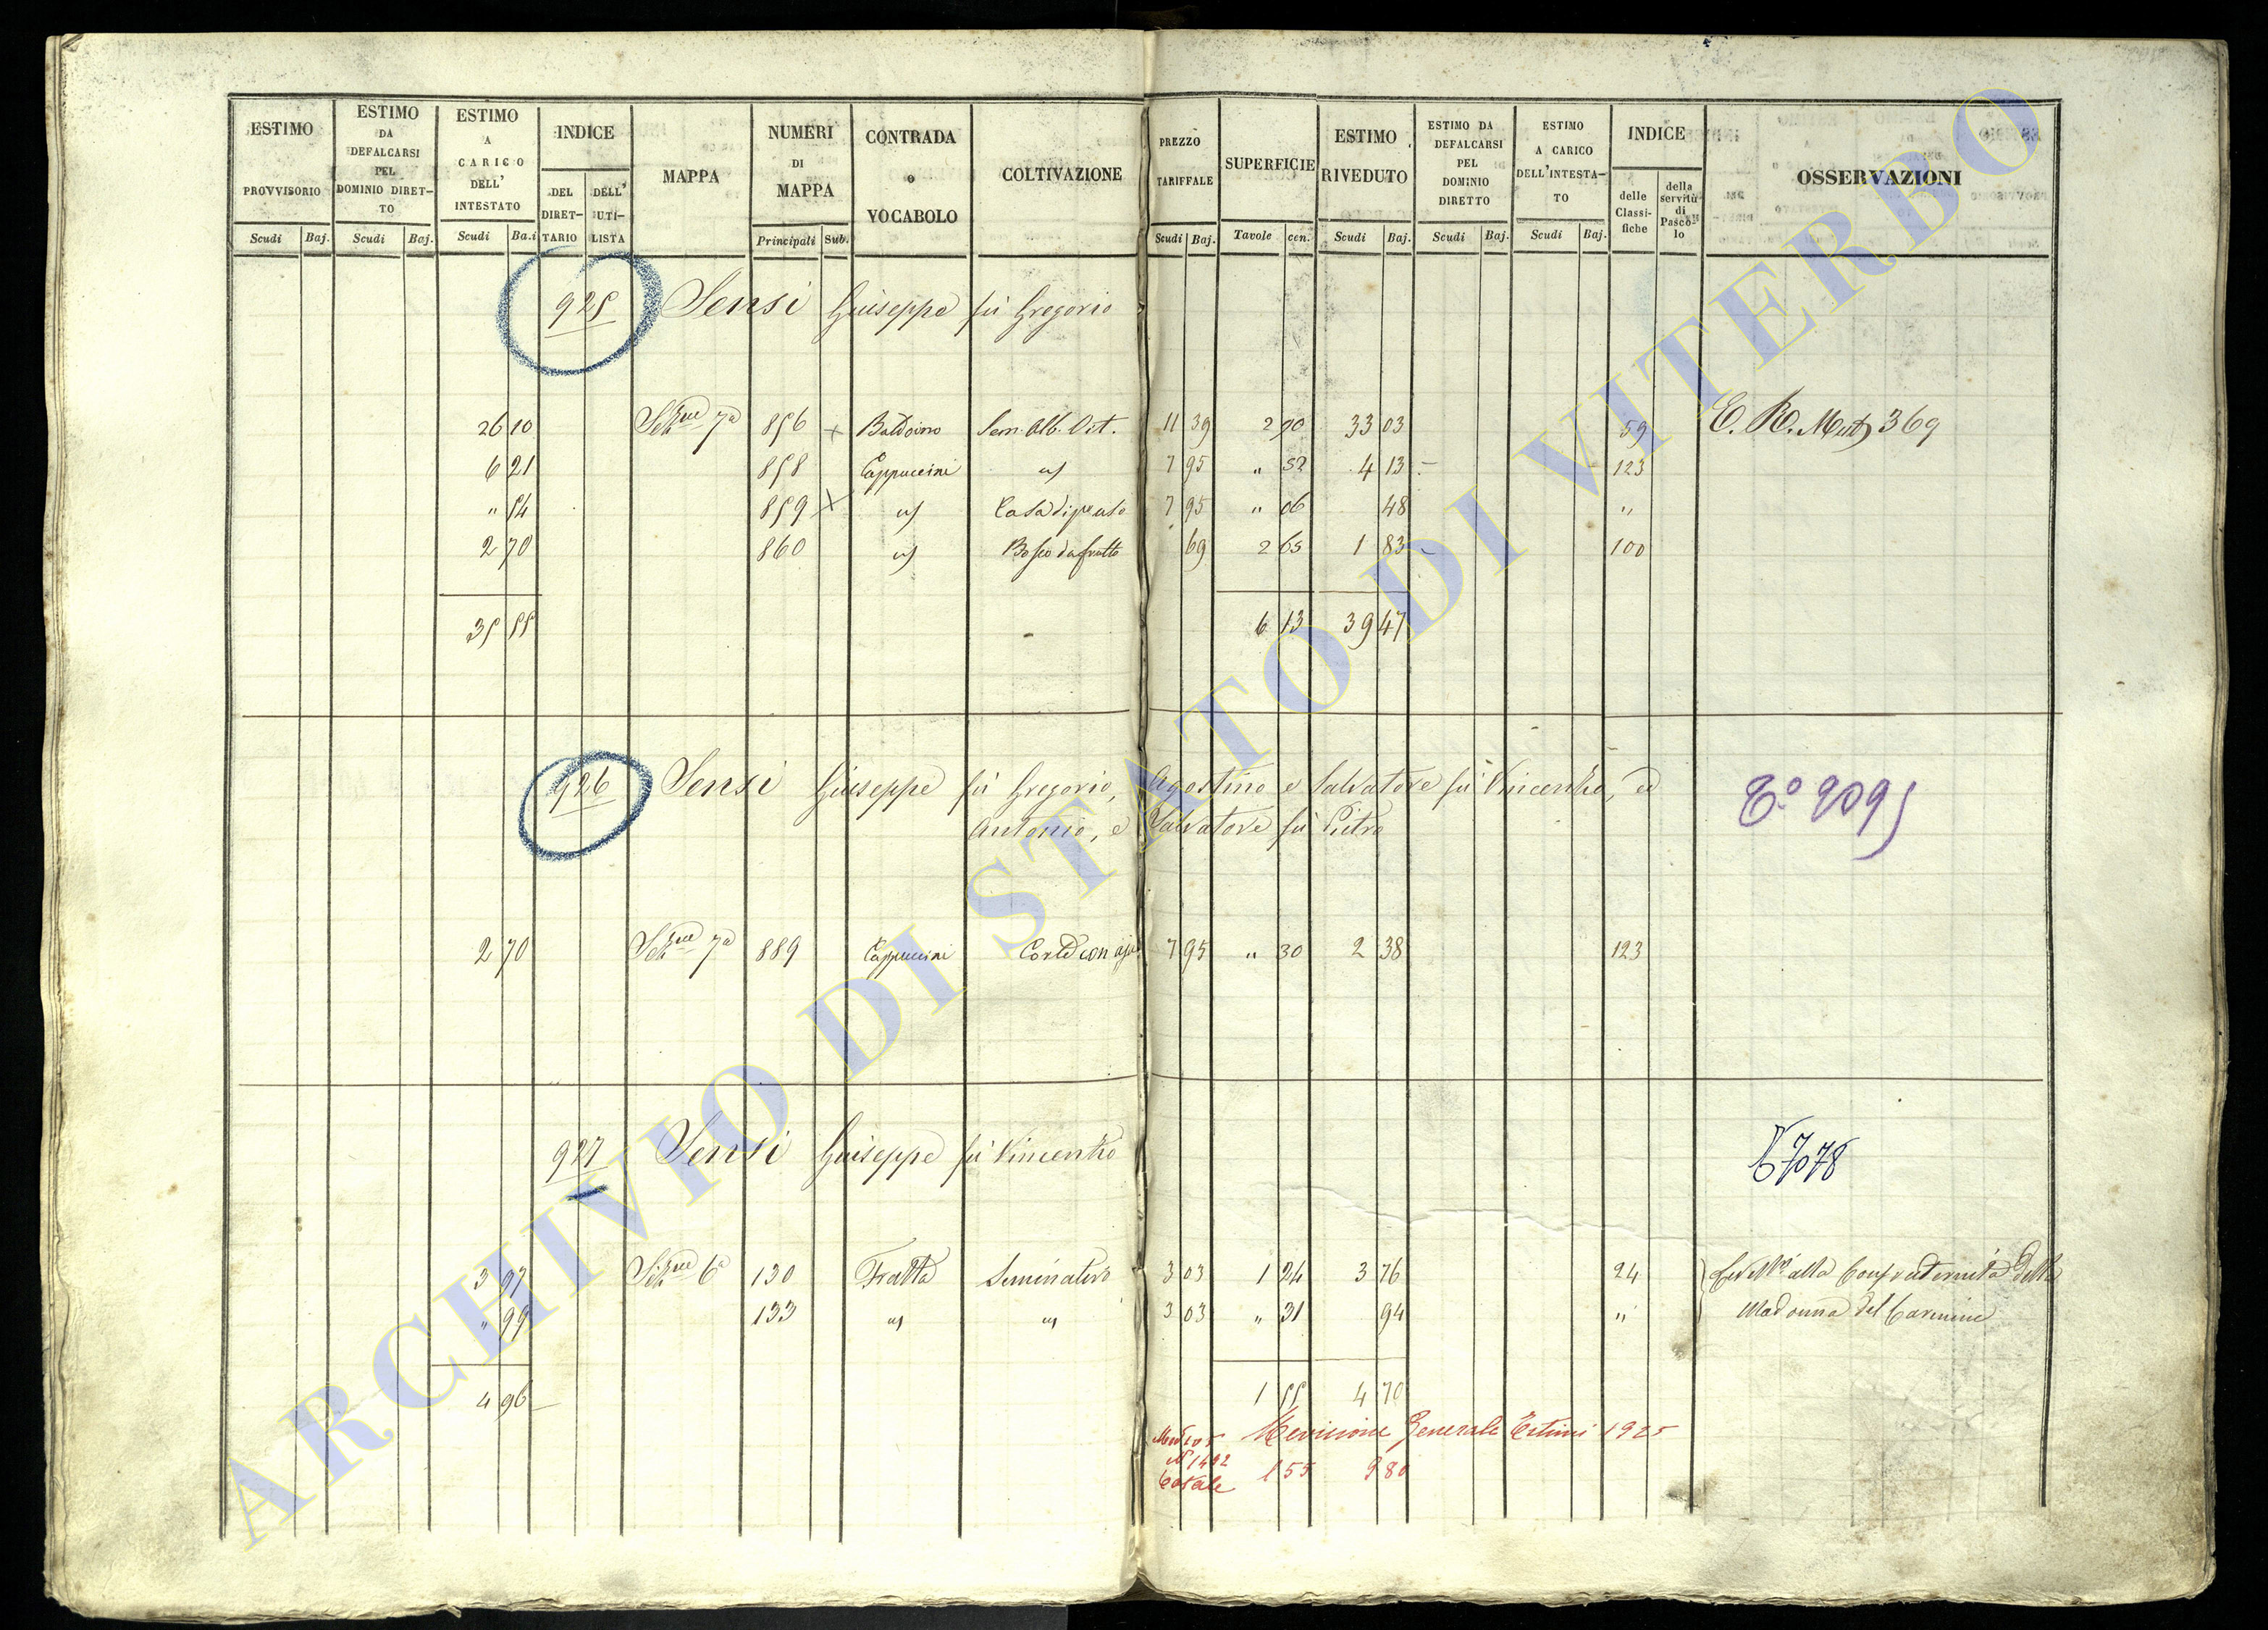 ESTIMO PROVVISORIO | ESTIMO DA DEFALCARSI PEL DOMINIO DIRETTO | ESTIMO A CARICO DELL' INTESTATO | INDICE | MAPPA | NUMERI DI MAPPA | CONTRADA o VOCABOLO | COLTIVAZIONE | PREZZO TARIFFALE | SUPERFICIE | ESTIMO RIVEDUTO | ESTIMO DA DEFALCARSI PEL DOMINIO DIRETTO | ESTIMO A CARICO DELL'INTESTATO | INDICE | OSSERVAZIONI
DEL DIRETTARIO | DELL' UTILISTA | delle Classifiche | della servitù di Pascolo
Scudi | Baj. | Scudi | Baj. | Scudi | Ba.i | Principali | Sub. | Scudi | Baj. | Tavole | cen. | Scudi | Baj. | Scudi | Baj. | Scudi | Baj.
925 Sensi Giuseppe fù Gregorio
26 10 Sezne 7a 856 + Baldoino Sem. Alb. Vit. 11 39 2 90 33 03 59 369
6 21 858 Cappuccini " 7 95 " 52 4 13 123
" 54 859 X " Casa di pe uso 7 95 " 06 48 "
2 70 860 " Bosco da frutto 69 2 65 1 83 100
35 55 6 13 39 47
926 Sensi Giuseppe fù Gregorio, Agostino e Salvatore fù Vincenzo, ed
Antonio, e Salvatore fù Pietro
2095
2 70 Sezne 7a 889 Cappuccini Corte con aja 7 95 " 30 2 38 123
927 Sensi Giuseppe fù Vincenzo
7078
3 97 Sezne 6a 130 Fratta Seminativo 3 03 1 24 3 76 24 alla Confraternita della
" 99 133 " " 3 03 " 31 94 " Madonna del Carmine
4 96 1 55 4 70
Revisione Generale Estimi 1925
N 1492
Totale 155 980
ARCHIVIO DI STATO DI VITERBO